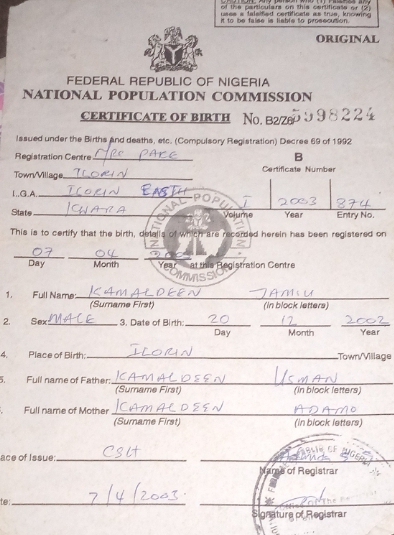 CAUTION: Any person who (1) falsifies any
of the particulars on this certificate or (2)
uses a falsified certificate as true, knowing
it to be false is liable to prosecution.
ORIGINAL
FEDERAL REPUBLIC OF NIGERIA
NATIONAL POPULATION COMMISSION
CERTIFICATE OF BIRTH No. B2/Z6 5598224
Issued under the Births and deaths, etc. (Compulsory Registration) Decree 69 of 1992
Registration Centre PAKE B
Certificate Number
Town/Village ILORIN
L.G.A. ILORIN EAST I 2003 874
State KWARA Volume Year Entry No.
This is to certify that the birth, details of which are recorded herein has been registered on
07 04
Day Month Year at this Registration Centre
1. Full Name: KAMALDEEN JAMIU
(Surname First) (in block letters)
2. Sex MALE 3. Date of Birth: 20 12 2002
Day Month Year
4. Place of Birth: ILORIN Town/Village
5. Full name of Father: KAMALDEEN USMAN
(Surname First) (in block letters)
Full name of Mother KAMALDEEN ADAMO
(Surname First) (in block letters)
ace of Issue: CSH
Name of Registrar
te: 7/4/2003
Signature of Registrar
NATIONAL POPULATION COMMISSION